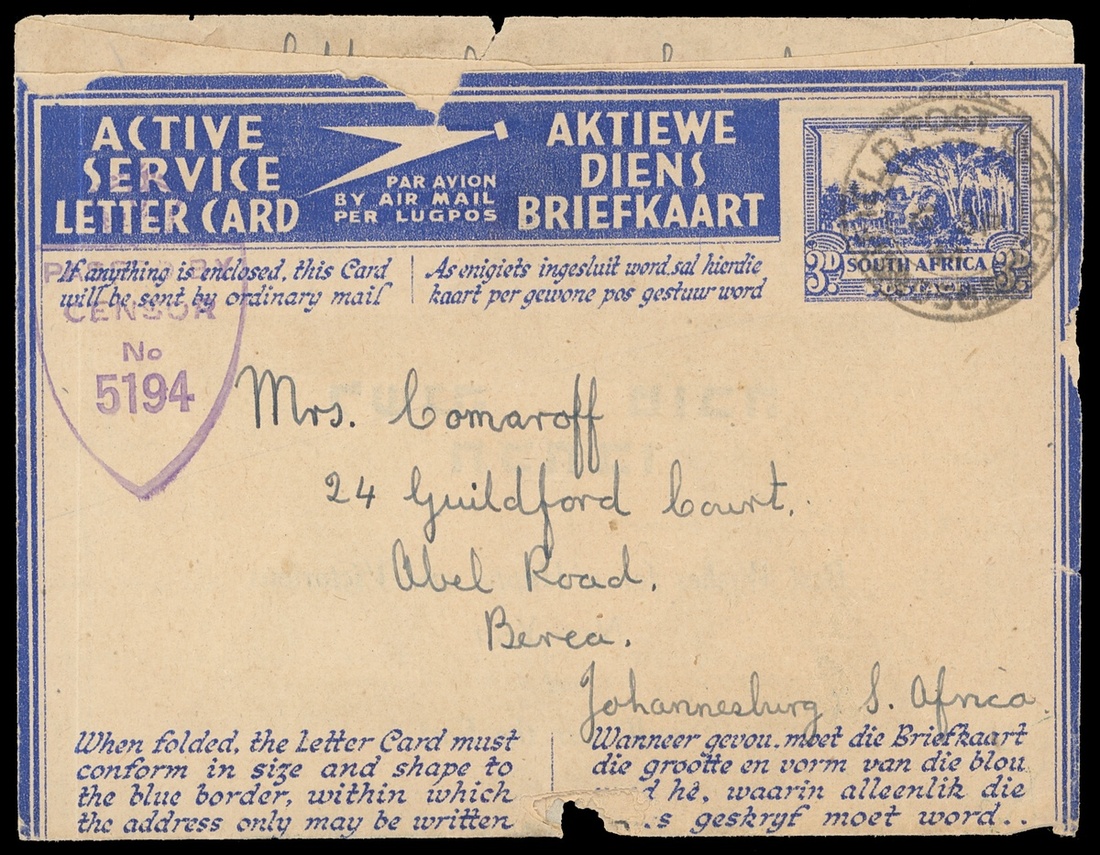 ACTIVE
SERVICE
LETTER CARD
PAR AVION
BY AIR MAIL
PER LUGPOS
AKTIEWE
DIENS
BRIEFKAART
If anything is enclosed, this Card
will be sent by ordinary mail
As enigiets ingesluit word, sal hierdie
kaart per gewone pos gestuur word
FIELD POST OFFICE
3D SOUTH AFRICA 3D
PASSED BY
CENSOR
No
5194
Mrs. Comaroff
24 Guildford Court,
Abel Road,
Berea.
Johannesburg S. Africa
When folded, the Letter Card must
conform in size and shape to
the blue border, within which
the address only may be written
Wanneer gevou, moet die Briefkaart
die grootte en vorm van die blou
hê, waarin alleenlik die
geskryf moet word..